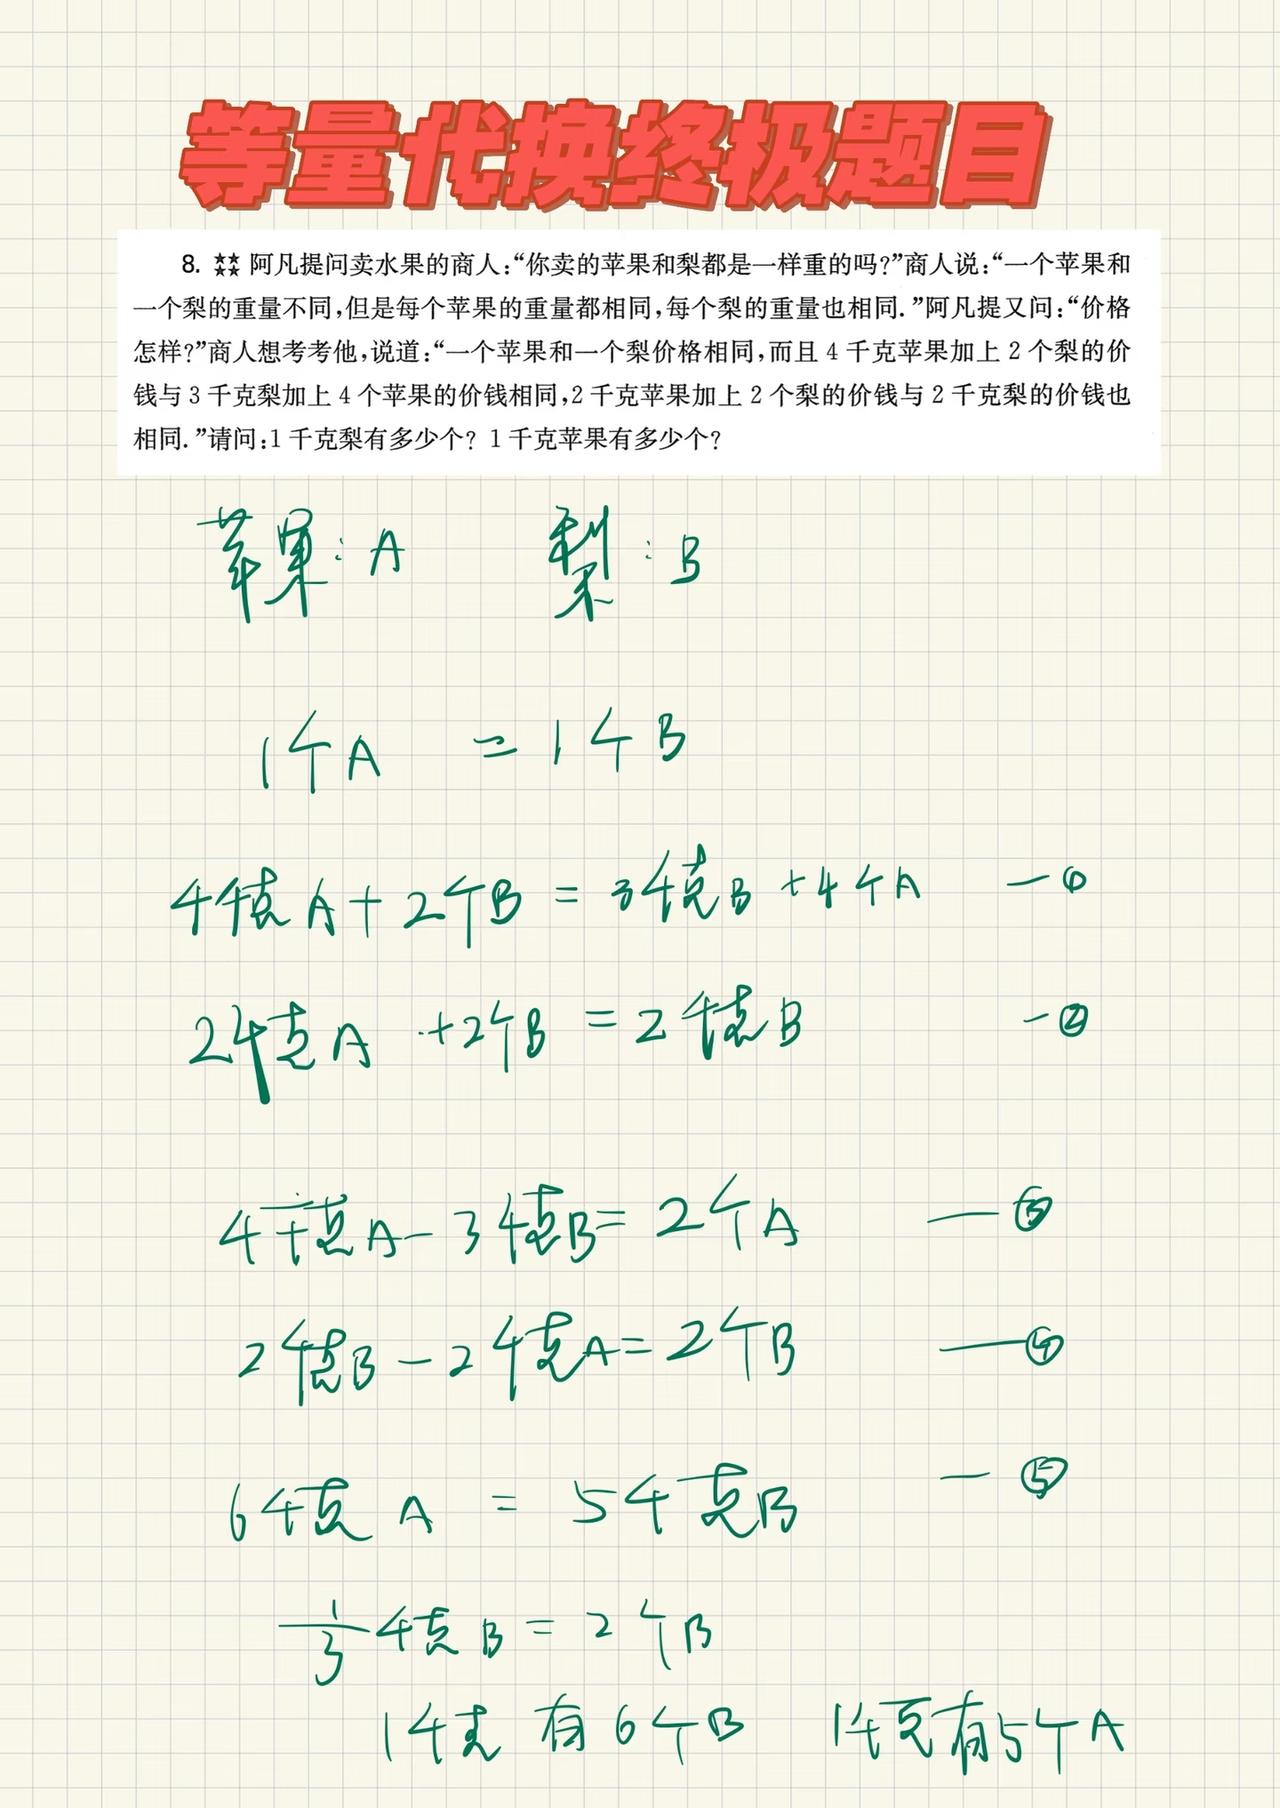 等量代换终极题目
8. ★★★★ 阿凡提问卖水果的商人:“你卖的苹果和梨都是一样重的吗?”商人说:“一个苹果和
一个梨的重量不同,但是每个苹果的重量都相同,每个梨的重量也相同.”阿凡提又问:“价格
怎样?”商人想考考他,说道:“一个苹果和一个梨价格相同,而且 4 千克苹果加上 2 个梨的价
钱与 3 千克梨加上 4 个苹果的价钱相同,2 千克苹果加上 2 个梨的价钱与 2 千克梨的价钱也
相同.”请问:1 千克梨有多少个? 1 千克苹果有多少个?
苹果:A 梨:B
1个A = 1个B
4千克A+2个B = 3千克B+4个A —①
2千克A +2个B = 2千克B —②
4千克A-3千克B= 2个A —③
2千克B-2千克A= 2个B —④
6千克A = 5千克B —⑤
1/3千克B = 2个B
1千克有6个B 1千克有5个A